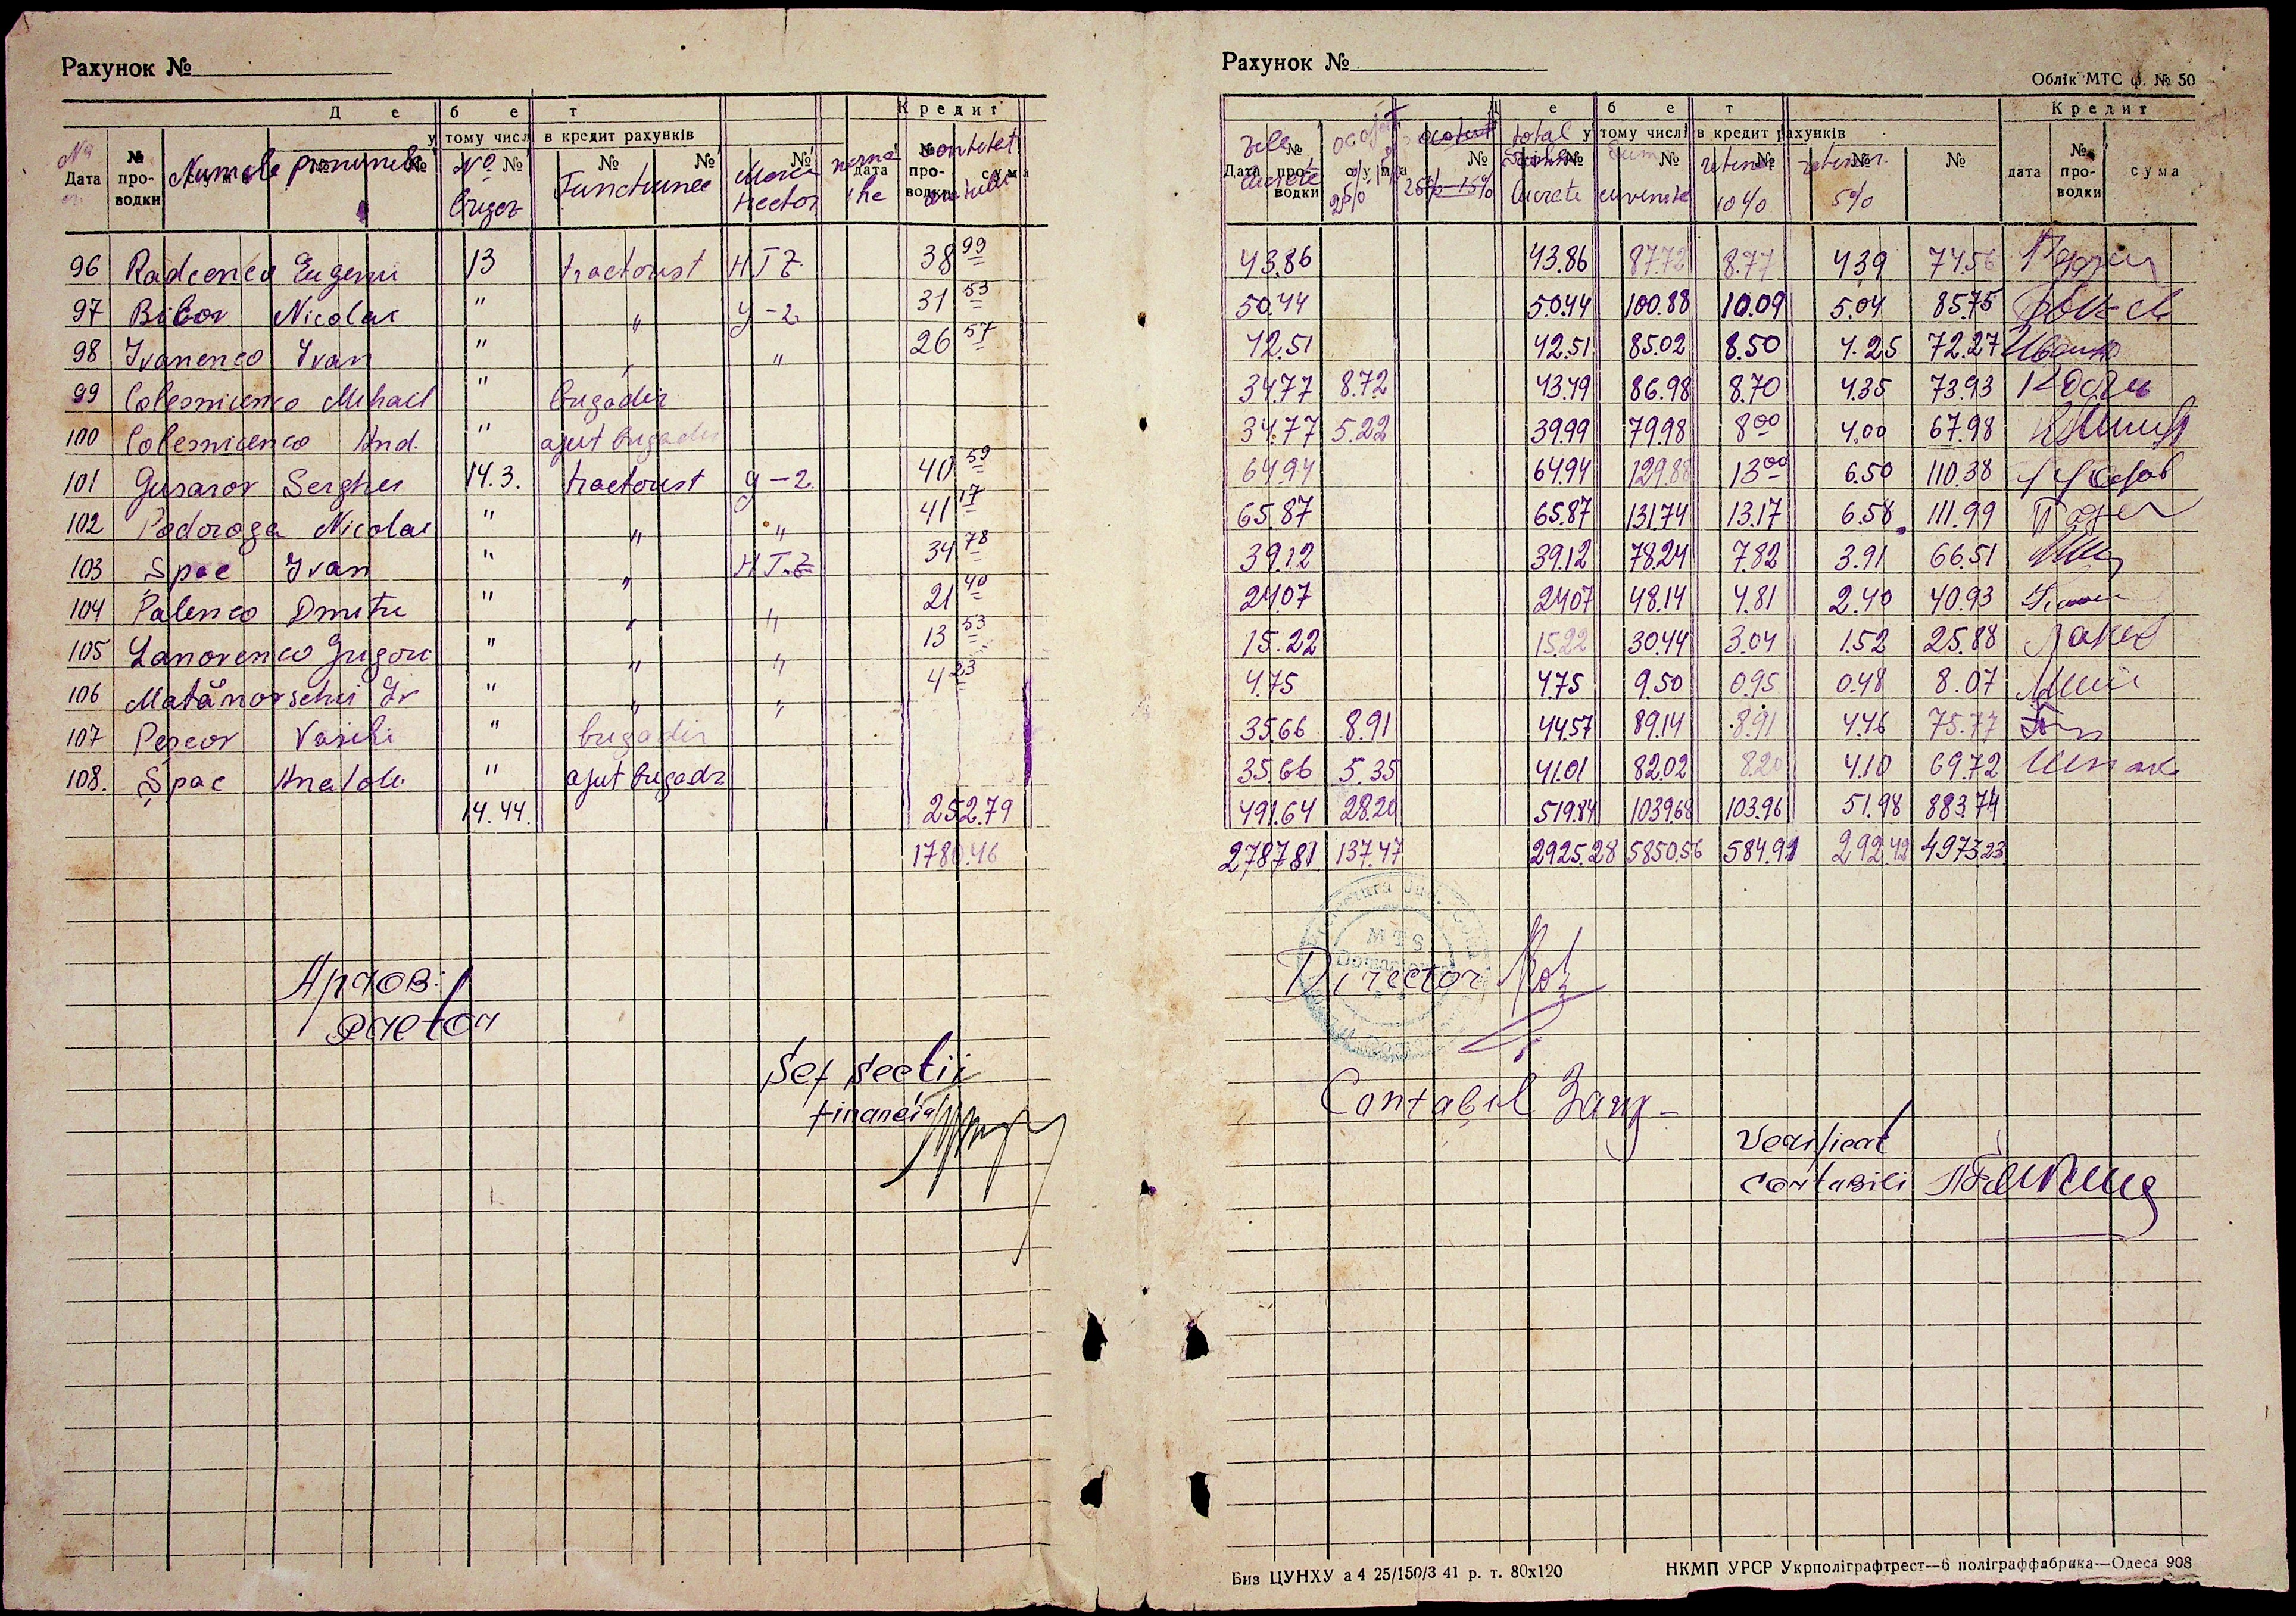 Рахунок №
Рахунок №
Облік МТС ф. № 50
Дебет
Кредит
Дебет
Кредит
у тому числі в кредит рахунків
у тому числі в кредит рахунків
Дата № проводки Numele pronumele № № № № № дата № проводки сума
№ brigaz Functiunea Marca tractor
Дата № проводки сума № № № № № № дата № проводки сума
Zile lucrate 25% 25% 15% total lucrate cuvenite retiner 10% retiner 5%
96 Radcenco Eugeni 13 tractorist HTZ 38 99 43.86 43.86 87.72 8.77 4.39 74.56
97 Bibov Nicolai " " У-2 31 53 50.44 50.44 100.88 10.09 5.04 85.75
98 Ivanenco Ivan " " " 26 57 42.51 42.51 85.02 8.50 4.25 72.27
99 Colesnicenco Mihail " brigadir 34.77 8.72 43.49 86.98 8.70 4.35 73.93
100 Colesnicenco And. " ajut brigadir 34.77 5.22 39.99 79.98 8 00 4.00 67.98
101 Gusarov Serghei 14.3. tractorist У-2 40 59 64.94 64.94 129.88 13 00 6.50 110.38
102 Podoroga Nicolai " " " 41 17 65.87 65.87 131.74 13.17 6.58 111.99
103 Șpac Ivan " " HTZ 34 78 39.12 39.12 78.24 7.82 3.91 66.51
104 Palenco Dmitri " " " 21 40 24.07 24.07 48.14 4.81 2.40 40.93
105 Lanovenco Grigori " " " 13 53 15.22 15.22 30.44 3.04 1.52 25.88
106 Matănovschii Iv " " " 4 23 4.75 4.75 9.50 0.95 0.48 8.07
107 Pescov Vasili " brigadir 35.66 8.91 44.57 89.14 8.91 4.46 75.77
108. Șpac Anatoli " ajut brigadir 35.66 5.35 41.01 82.02 8.20 4.10 69.72
14.44. 252.79 491.64 28.20 519.84 1039.68 103.96 51.98 883.74
1780.46 2787.81 137.47 2925.28 5850.56 584.91 292.42 4973.23
MTS
Director
Șef secții
financiar
Contabil
Verificat
contabili
Биз ЦУНХУ а 4 25/150/3 41 р. т. 80х120
НКМП УРСР Укрполіграфтрест—6 поліграффабрика—Одеса 908